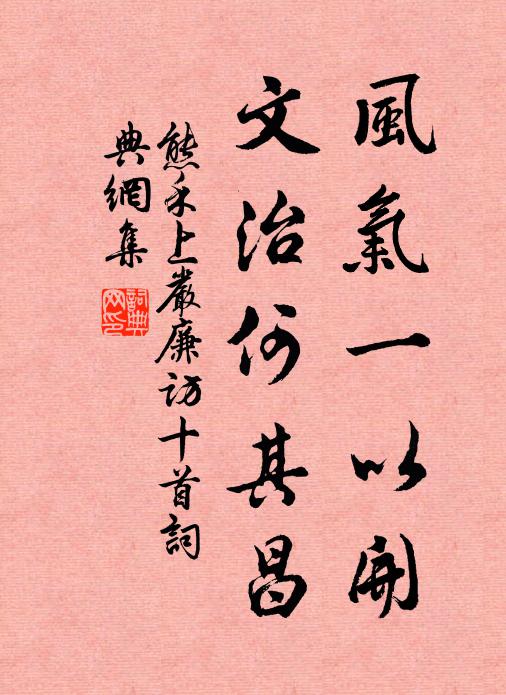 風氣一以開
文治何其昌
熊禾上嚴廉訪十首詞
典網集
詞典
网印